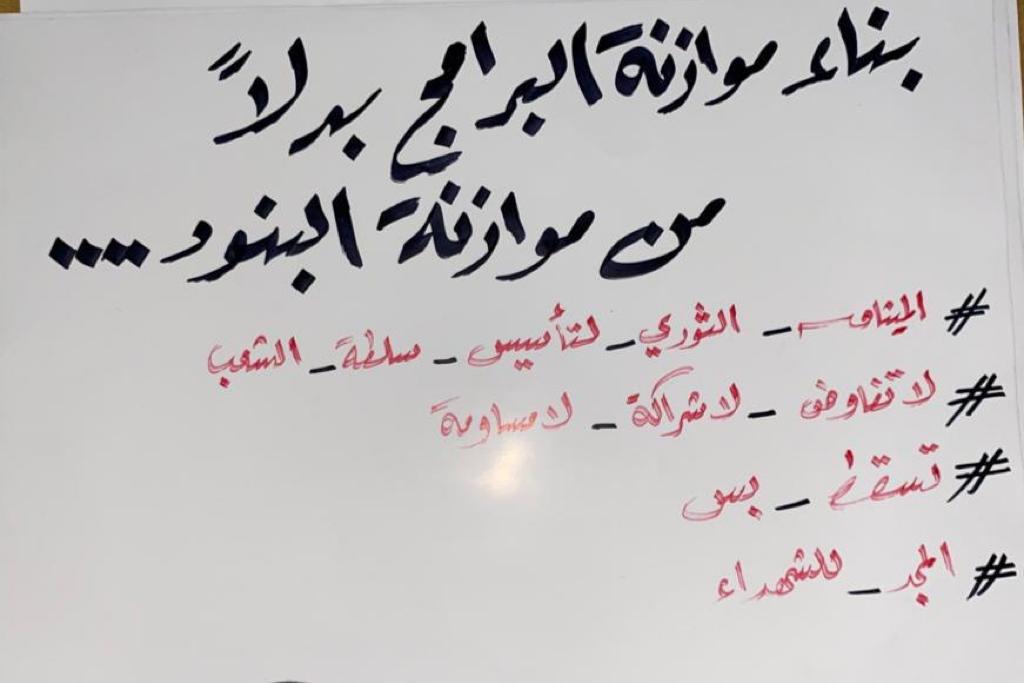 بناء موازنة البرامج بدلاً
من موازنة البنود ....
# الميثاق _ الثوري _ لتأسيس _ سلطة _ الشعب
# لا تفاوض _ لا شراكة _ لا مساومة
# تسقط _ بس
# المجد _ للشهداء